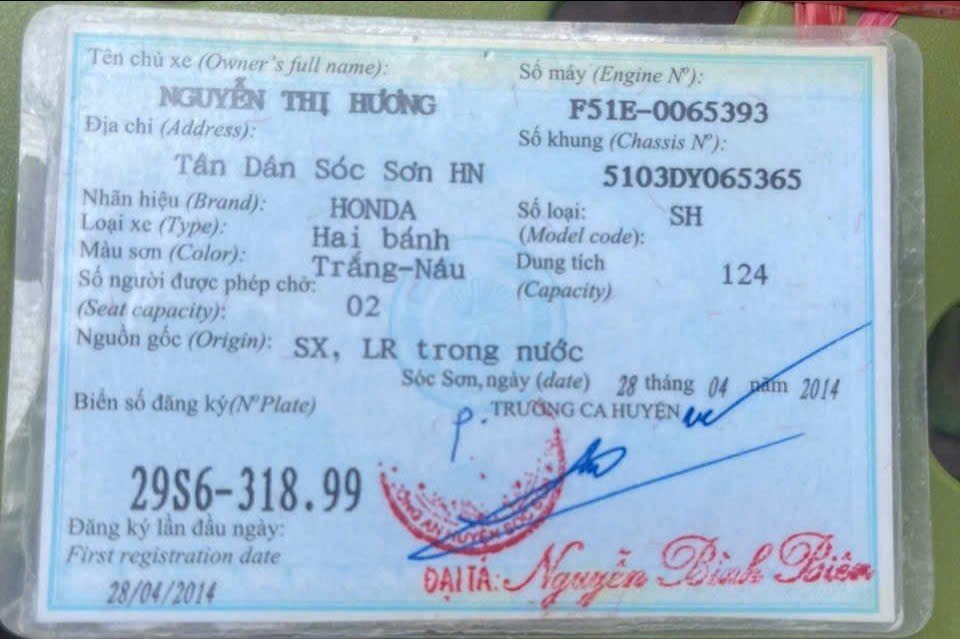 Tên chủ xe (Owner's full name):
NGUYỄN THỊ HƯƠNG
Địa chỉ (Address):
Tân Dân Sóc Sơn HN
Nhãn hiệu (Brand): HONDA
Loại xe (Type): Hai bánh
Màu sơn (Color): Trắng-Nâu
Số người được phép chở:
(Seat capacity): 02
Nguồn gốc (Origin): SX, LR trong nước
Số máy (Engine Nº):
F51E-0065393
Số khung (Chassis Nº):
5103DY065365
Số loại: SH
(Model code):
Dung tích 124
(Capacity)
Sóc Sơn, ngày (date) 28 tháng 04 năm 2014
TRƯỞNG CA HUYỆN
Biển số đăng ký(Nº Plate)
29S6-318.99
Đăng ký lần đầu ngày:
First registration date
28/04/2014
CÔNG AN HUYỆN SÓC
ĐẠI TÁ: Nguyễn Bình Biên